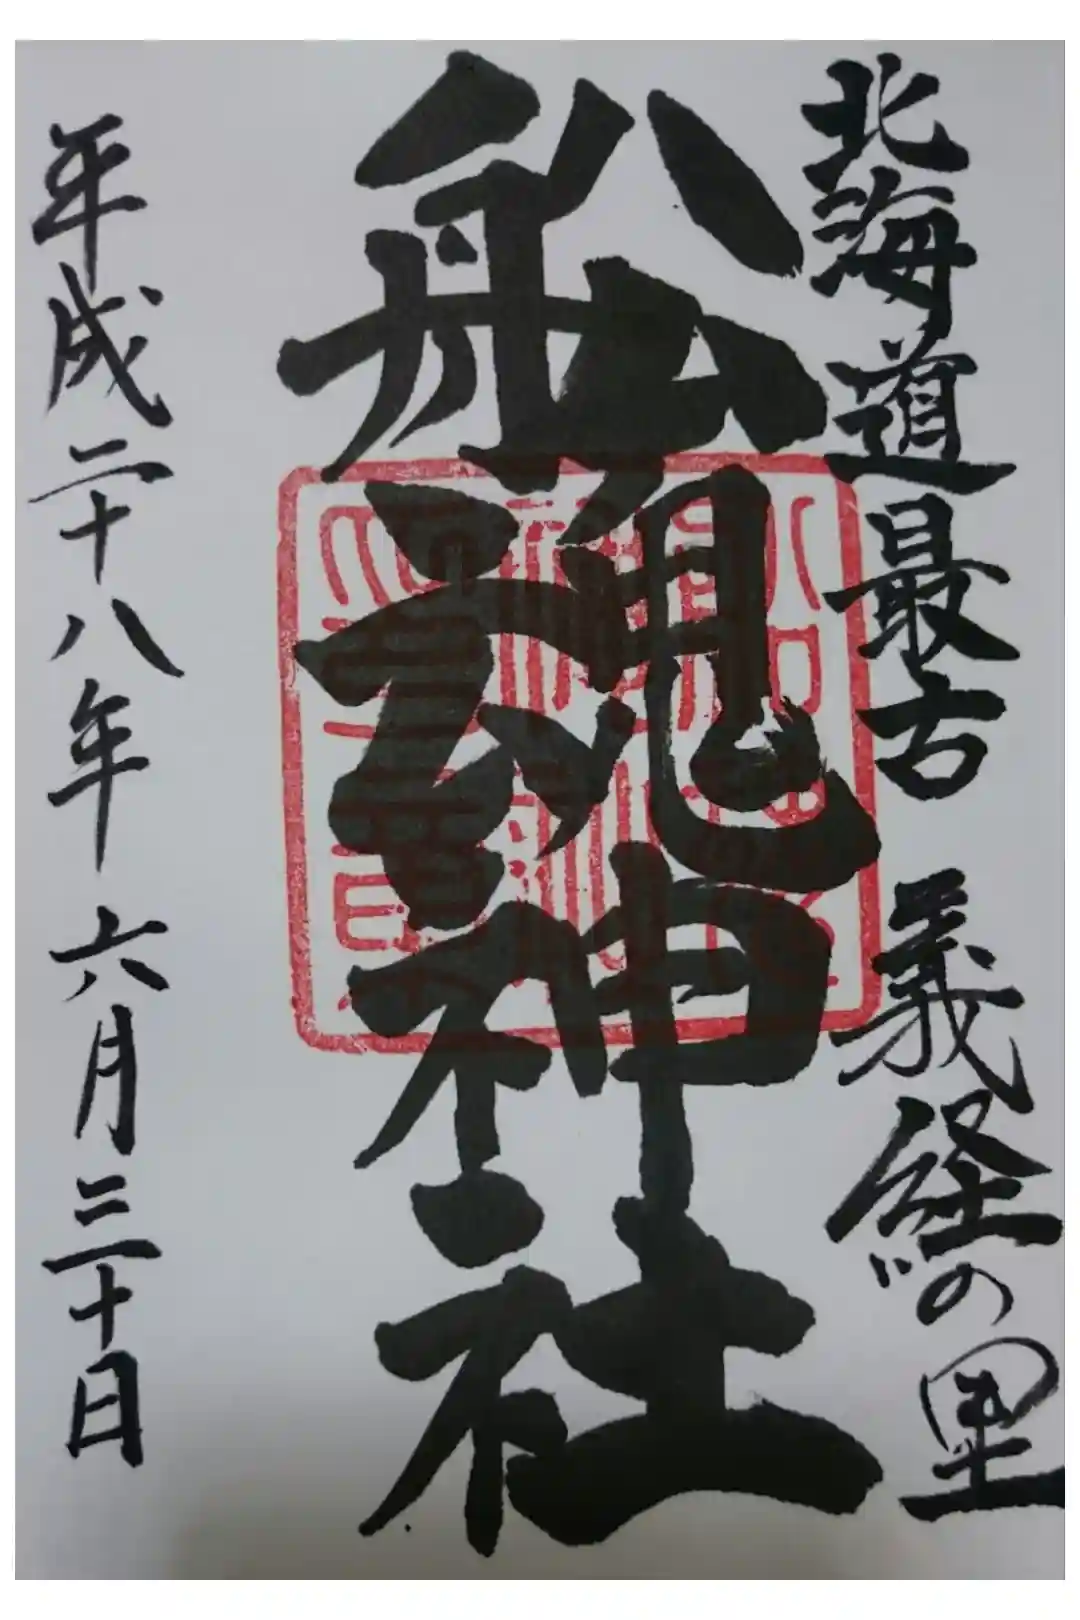 北海道最古 義経の里
船魂神社
平成二十八年六月三十日